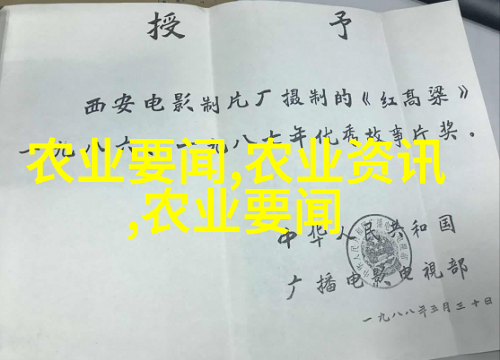 授 予
西安电影制片厂摄制的《红高粱》
一九八六、一九八七年优秀故事片奖。
农业要闻,农业资讯
,农业要闻
中华人民共和国
广播电影电视部
一九八八年三月三十日